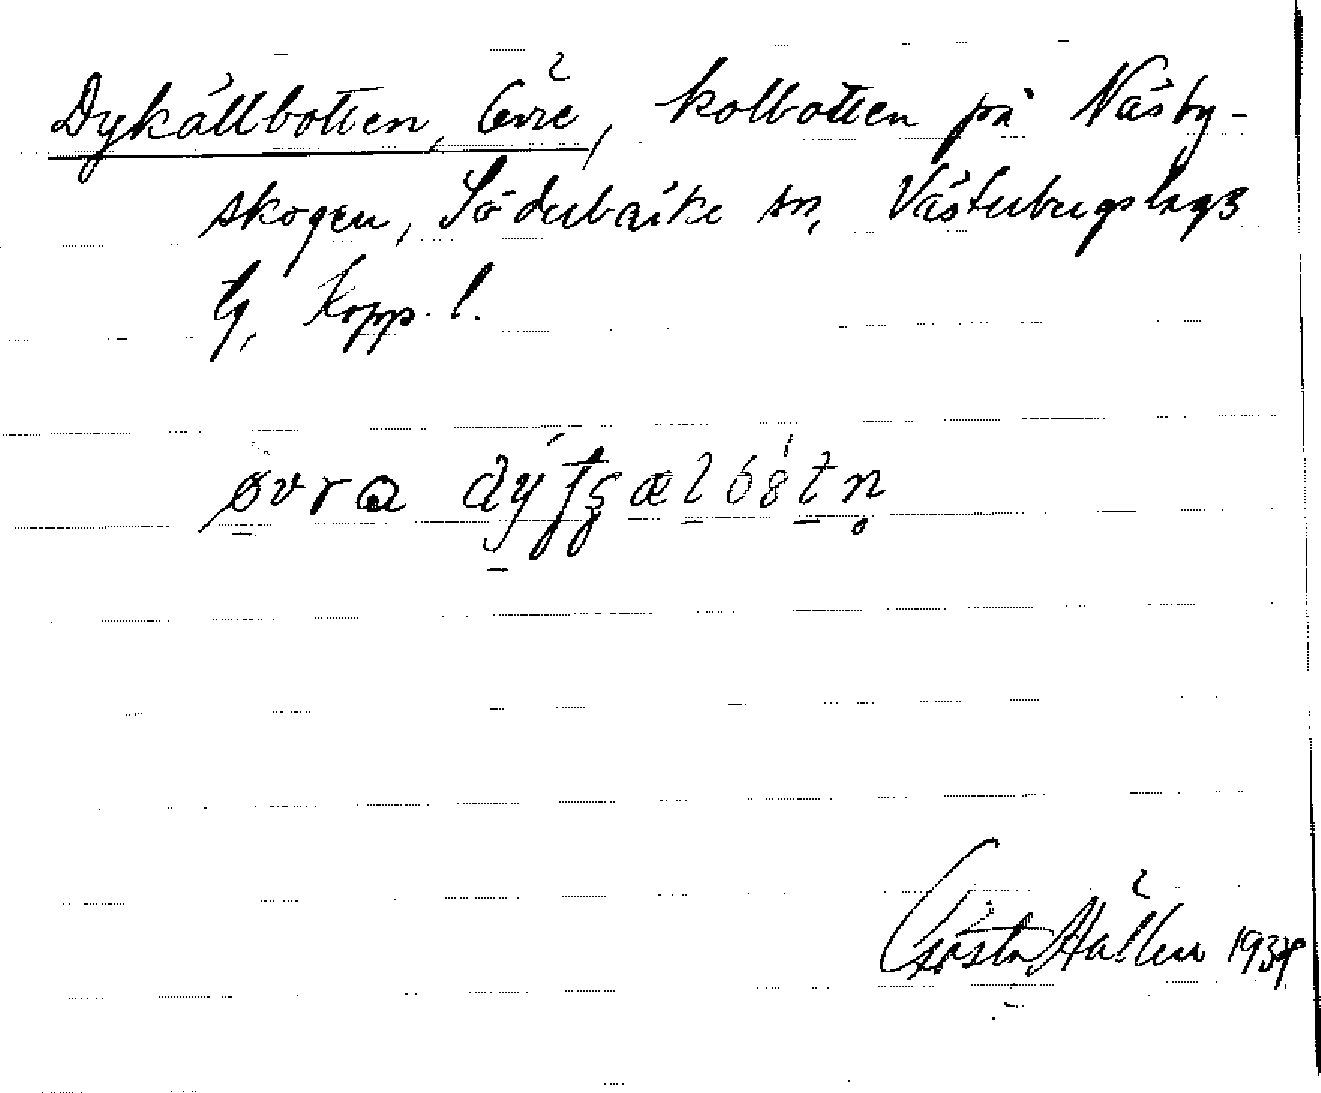 Dykällbotten, Övre, kolbotten på Näsby-
skogen, Söderbärke sn, Västerbergslags
tg, Kopp. l.
øvra
Gösta Hallén